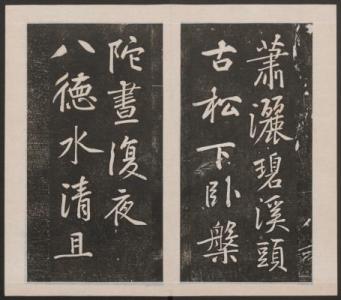 蕭灑碧溪頭
古松下卧槃
陀晝復夜
八德水清且